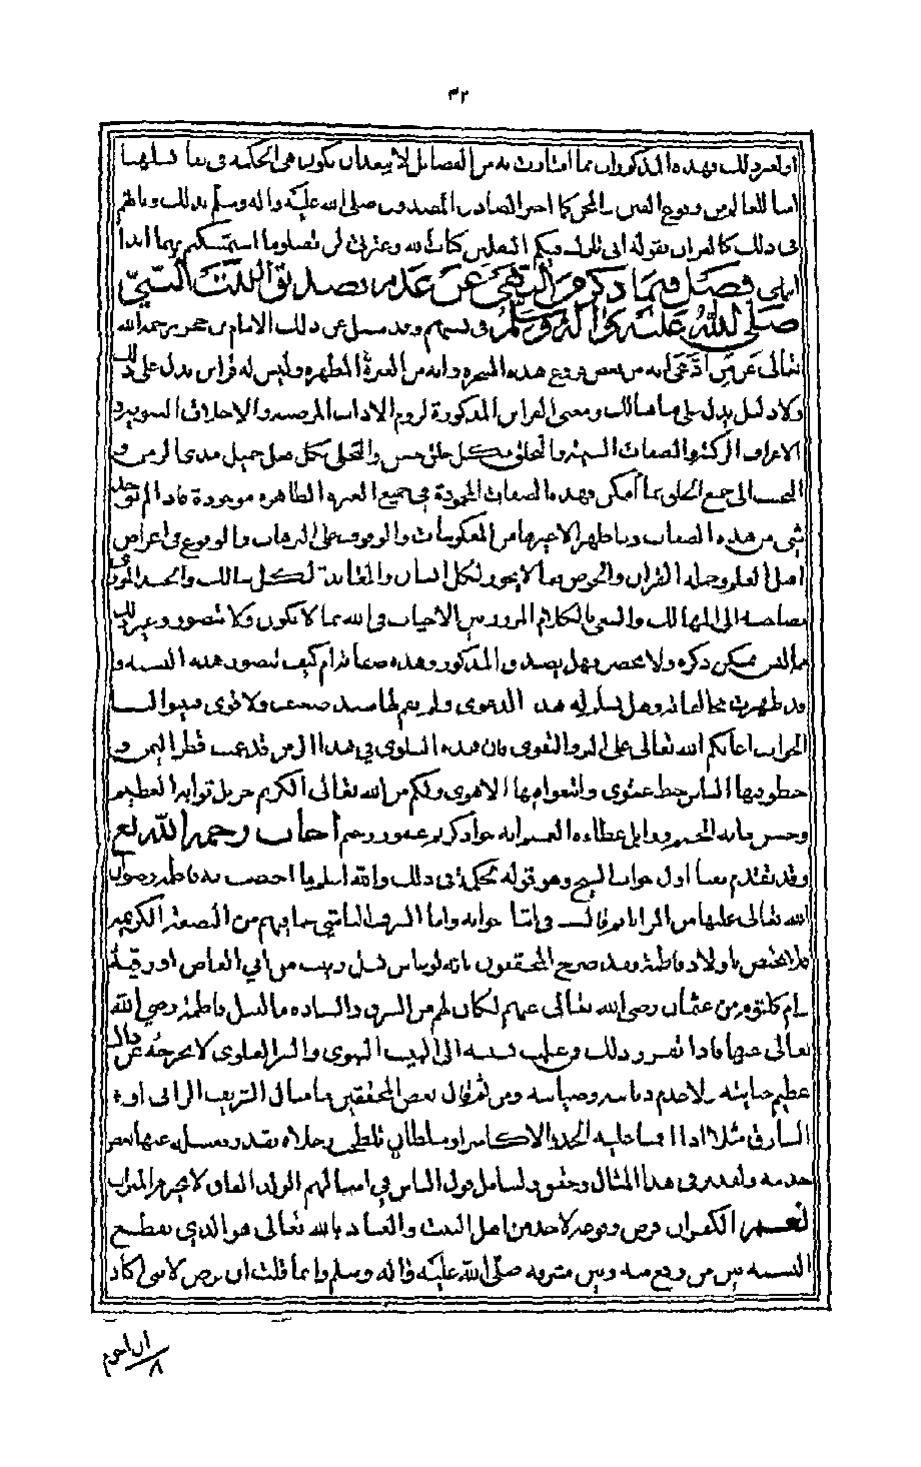 ٤٢
او لغير ذلك فهذه المذكورات مما امتازت به من الفضائل لا يبعد ان يكون هي الحكمة في بقا نسلها
اما للعالم من وقوع الفتن والمحن كما اخبر الصادق المصدوق صلى الله عليه واله وسلم بذلك وبانهم
في ذلك كالقرآن بقوله اني تارك فيكم الثقلين كتاب الله وعترتي لن تضلوا ما استمسكتم بهما ابدا
انتهى فصل فيما ذكر من النفي عن عدم تصديق اهل البيت النبي
صلى الله عليه واله وسلم في نسبهم وقد سئل عن ذلك الامام بن حجر رحمه الله
تعالى عن من ادّعى انه من بعض فروع هذه الشجره وانه من العترة المطهره وليس له قراين يدل على ذلك
ولا دليل يدل على ما هنالك ومعنى القراين المذكورة لزوم الاداب المرضيه والاخلاق السويه و
الاعراف الزكية والصفات السنية والتخلق بكل خلق حسن والتحلي بكل فعل جميل
جميع الخلق مما امكن فهذه الصفات المحمودة في جميع العترة الطاهره موجودة فاذا لم توجد
شي من هذه الصفات وما ظهر الا غيرها من المعكوسات والوقوف على الترهات والوقوع في اعراض
اهل العلم وحمله القران والخوض بما لا يجوز لكل انسان
بصاحبه الى المهالك والسعي بالكلام المزور بين الاحباب في الله مما لا يكون ولا يتصور وغير ذلك
مما ليس يمكن ذكره ولا يحصر فهل يصدق المذكور وهذه صفاته ام كيف تتصور هذه النسبه و
قد ظهرت مخالفاته وهل تسلم له هذه الدعوى ولم يقم لها سند ضعيف ولا قوي فبينوا لنا
الجواب اعانكم الله تعالى على البر والتقوى فان هذه البلوى في هذا الزمن قد عمت قطر اليمن و
خبطوا فيها الناس خبط عشوى واتبعوا فيها الاهوى ولكم من الله تعالى الكريم جزيل ثوابه العظيم
وحسن مآبه الجسيم ووابل عطاءه العميم انه جواد كريم غفور رحيم اجاب رحمه الله تع
وقد تقدم بعنا اول جواب الشيخ وهو قوله فاطمه رضوان
الله تعالى عليها من المزايا ثم قال في اثنا جوابه واما الشرف الناشي عما فيهم من البضعة الكريمه
فلا يختص باولاد فاطمة فقد صرح المحققون بانه لو عاش نسل زينب من ابي العاص او رقية
وام كلثوم من عثمان رضي الله تعالى عنهم لكان لهم من الشرف والسياده ما لنسل فاطمة رضي الله
تعالى عنها فاذا تقرر ذلك وعلمت نسبه الى البيت النبوي والسر العلوي لا يخرجه عن ذلك
عظيم جنايته ولا عدم ديانته وصيانته ومن ثم قال بعض المحققين ما مثال الشريف الزاني او
السارق مثلا اذا اقمنا عليه الحد الا كامير او سلطان تلطخ رجلاه بقذر فغسله عنهما بعض
خدمه ولقد بر في هذا المثال وحقق وليتامل قول الناس في امثالهم الولد العاق لا يحرم الميراث
نعم الكفر ان فرض وقوعه لاحد من اهل البيت والعياذ بالله تعالى هو الذي يقطع
النسبه بين من وقع منه وبين مشرفه صلى الله عليه واله وسلم وانما قلت ان فرض لانني اكاد
ان اجزم
٨